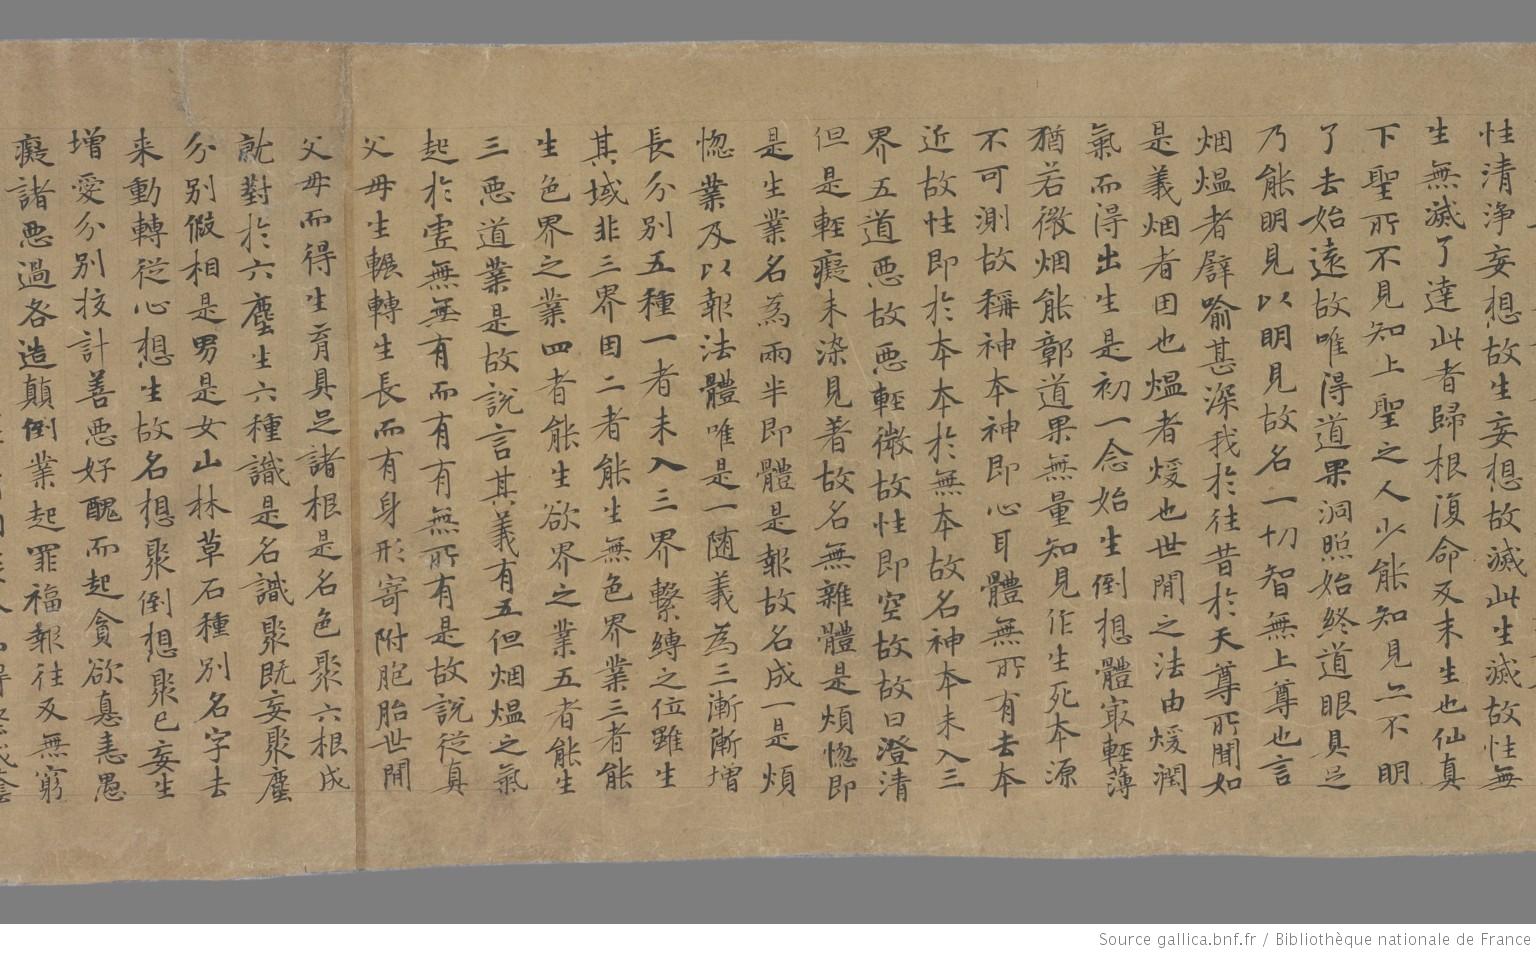 性清淨妄想故生妄想故滅此生滅故性無
生無滅了達此者歸根復命反未生也仙真
下聖所不見知上聖之人少能知見亦不明
了去始遠故唯得道果洞照始終道眼具足
乃能明見以明見故名一切智無上尊也言
烟煴者譬喻甚深我於往昔於天尊所聞如
是義烟者因也煴者煖也世間之法由煖潤
氣而得出生是初一念始生倒想體冣輕薄
猶若微烟能鄣道果無量知見作生死本源
不可測故稱神本神即心耳體無所有去本
近故性即於本本於無本故名神本未入三
界五道惡故惡輕微故性即空故故曰澄清
但是輕癡未染見著故名無雜體是煩惚即
是生業名為兩半即體是報故名成一是煩
惚業及以報法體唯是一随義為三漸漸增
長分別五種一者未入三界繫縛之位雖生
其域非三界因二者能生無色界業三者能
生色界之業四者能生欲界之業五者能生
三惡道業是故說言其義有五但烟煴之氣
起於虛無無有而有有無所有是故說從真
父母生轉轉生長而有身形寄附胞胎世間
父母而得生育具足諸根是名色聚六根成
就對於六塵生六種識是名識聚既妄聚塵
分別假相是男是女山林草石種別名字去
来動轉從心想生故名想聚倒想聚已妄生
增愛分別挍計善惡好醜而起貪欲恚愚
癡諸惡過各造顛倒業起罪福報往反無窮